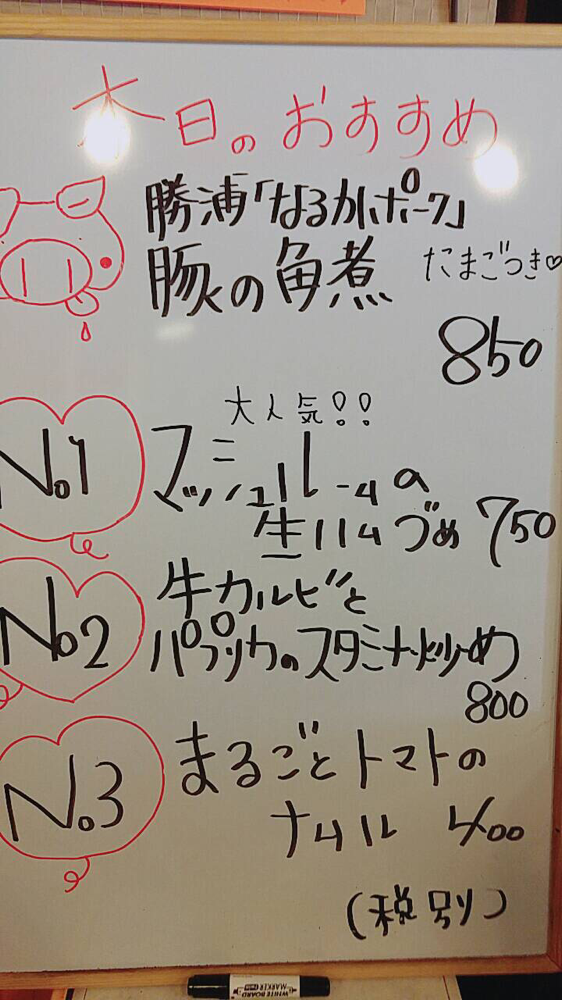 本日のおすすめ
勝浦「なるかポーク」
豚の角煮 たまごつき♡
850
大人気!!
No.1 マッシュルームの
生ハムづめ 750
No.2 牛カルビと
パプリカのスタミナ炒め
800
No.3 まるごとトマトの
ナムル 400
(税別)
WHITE BOARD
MARKER